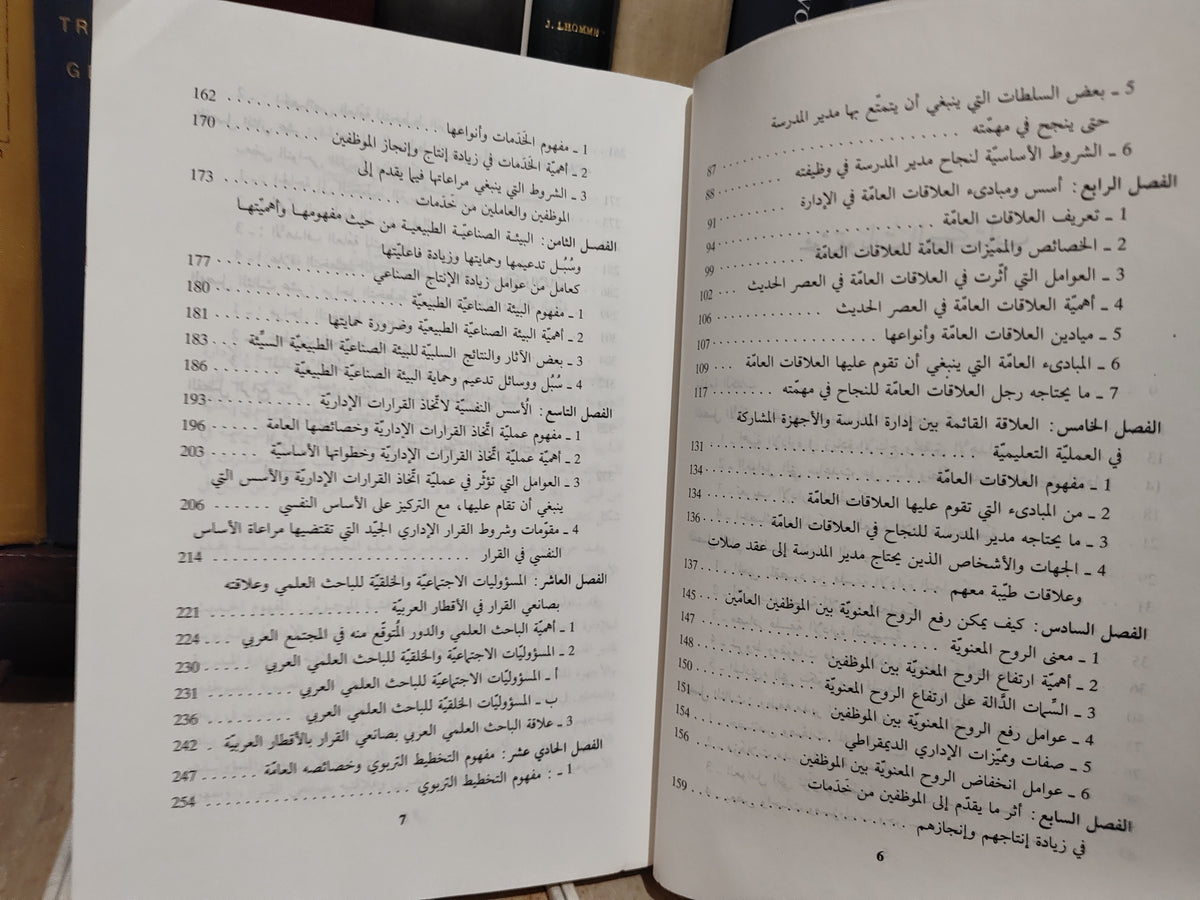 TR
G
J. LHOMME
5 ـ بعض السلطات التي ينبغي أن يتمتّع بها مدير المدرسة
حتى ينجح في مهمّته . . . . . . . . . . . . 87
6 ـ الشروط الأساسيّة لنجاح مدير المدرسة في وظيفته . . . . . . . 88
الفصل الرابع: أسس ومبادىء العلاقات العامّة في الإدارة . . . . . . 91
1 ـ تعريف العلاقات العامّة . . . . . . . . . . . . 94
2 ـ الخصائص والمميّزات العامّة للعلاقات العامّة . . . . . . . . 99
3 ـ العوامل التي أثّرت في العلاقات العامّة في العصر الحديث . . . 102
4 ـ أهميّة العلاقات العامّة في العصر الحديث . . . . . . . . 106
5 ـ ميادين العلاقات العامّة وأنواعها . . . . . . . . . . 107
6 ـ المبادىء العامّة التي ينبغي أن تقوم عليها العلاقات العامّة . . . 109
7 ـ ما يحتاجه رجل العلاقات العامّة للنجاح في مهمّته . . . . . 117
الفصل الخامس: العلاقة القائمة بين إدارة المدرسة والأجهزة المشاركة
في العمليّة التعليميّة . . . . . . . . . . . . 131
1 ـ مفهوم العلاقات العامّة . . . . . . . . . . . . 134
2 ـ من المبادىء التي تقوم عليها العلاقات العامّة . . . . . . . 134
3 ـ ما يحتاجه مدير المدرسة للنجاح في العلاقات العامّة . . . . . . 136
4 ـ الجهات والأشخاص الذين يحتاج مدير المدرسة إلى عقد صلات
وعلاقات طيّبة معهم . . . . . . . . . . . . 137
الفصل السادس: كيف يمكن رفع الروح المعنويّة بين الموظفين العامّين . . . 145
1 ـ معنى الروح المعنويّة . . . . . . . . . . . . 147
2 ـ أهميّة ارتفاع الروح المعنويّة بين الموظفين . . . . . . . . 148
3 ـ السِّمات الدَّالة على ارتفاع الروح المعنويّة . . . . . . . . 150
4 ـ عوامل رفع الروح المعنويّة بين الموظفين . . . . . . . . 151
5 ـ صفات ومميّزات الإداري الديمقراطي . . . . . . . . . 154
6 ـ عوامل انخفاض الروح المعنويّة بين الموظفين . . . . . . . 156
الفصل السابع: أثر ما يقدّم إلى الموظفين من خَدَمات
في زيادة إنتاجهم وإنجازهم . . . . . . . . . . . . 159
6
1 ـ مفهوم الخَدَمات وأنواعها . . . . . . . . . . . . 162
2 ـ أهميّة الخَدَمات في زيادة إنتاج وإنجاز الموظفين . . . . . . 170
3 ـ الشروط التي ينبغي مراعاتها فيما يقدم إلى
الموظفين والعاملين من خَدَمات . . . . . . . . . . 173
الفصل الثامن: البيئـة الصناعيّـة الطبيعيـة من حيث مفهومهـا وأهميّتهـا
وسُبُـل تدعيمها وحمايتها وزيادة فاعليّتها
كعامل من عوامل زيادة الإنتاج الصناعي . . . . . . . . 177
1 ـ مفهوم البيئة الصناعيّة الطبيعيّة . . . . . . . . . . 180
2 ـ أهميّة البيئة الصناعيّة الطبيعيّة وضرورة حمايتها . . . . . . 181
3 ـ بعض الآثار والنتائج السلبيّة للبيئة الصناعيّة الطبيعيّة السيِّئة . . . 183
4 ـ سُبُل ووسائل تدعيم وحماية البيئة الصناعيّة الطبيعيّة . . . . . 186
الفصل التاسع: الُأسس النفسيّة لاتّخاذ القرارات الإداريّة . . . . . . 193
1 ـ مفهوم عمليّة اتّخاذ القرارات الإداريّة وخصائصها العامة . . . . 196
2 ـ أهميّة عمليّة اتّخاذ القرارات الإداريّة وخطواتها الأساسيّة . . . . 203
3 ـ العوامل التي تؤثّر في عمليّة اتّخاذ القرارات الإداريّة والأسس التي
ينبغي أن تقام عليها، مع التركيز على الأساس النفسي . . . . . . 206
4 ـ مقوّمات وشروط القرار الإداري الجيّد التي تقتضيها مراعاة الأساس
النفسي في القرار . . . . . . . . . . . . 214
الفصل العاشر: المسؤوليات الاجتماعيّة والخلقيّة للباحث العلمي وعلاقته
بصانعي القرار في الأقطار العربيّة . . . . . . . . . . 221
1 ـ أهميّة الباحث العلمي والدور المُتوقّع منه في المجتمع العربي . . . 224
2 ـ المسؤوليّات الاجتماعيّة والخلقيّة للباحث العلمي العربي . . . . . 230
أ ـ المسؤوليّات الاجتماعيّة للباحث العلمي العربي . . . . . . 231
ب ـ المسؤوليّات الخلقيّة للباحث العلمي العربي . . . . . . 236
3 ـ علاقة الباحث العلمي العربي بصانعي القرار بالأقطار العربيّة . 242
الفصل الحادي عشر: مفهوم التخطيط التربوي وخصائصه العامّة . . . . . 247
1 ـ : مفهوم التخطيط التربوي . . . . . . . . . . . . 254
7